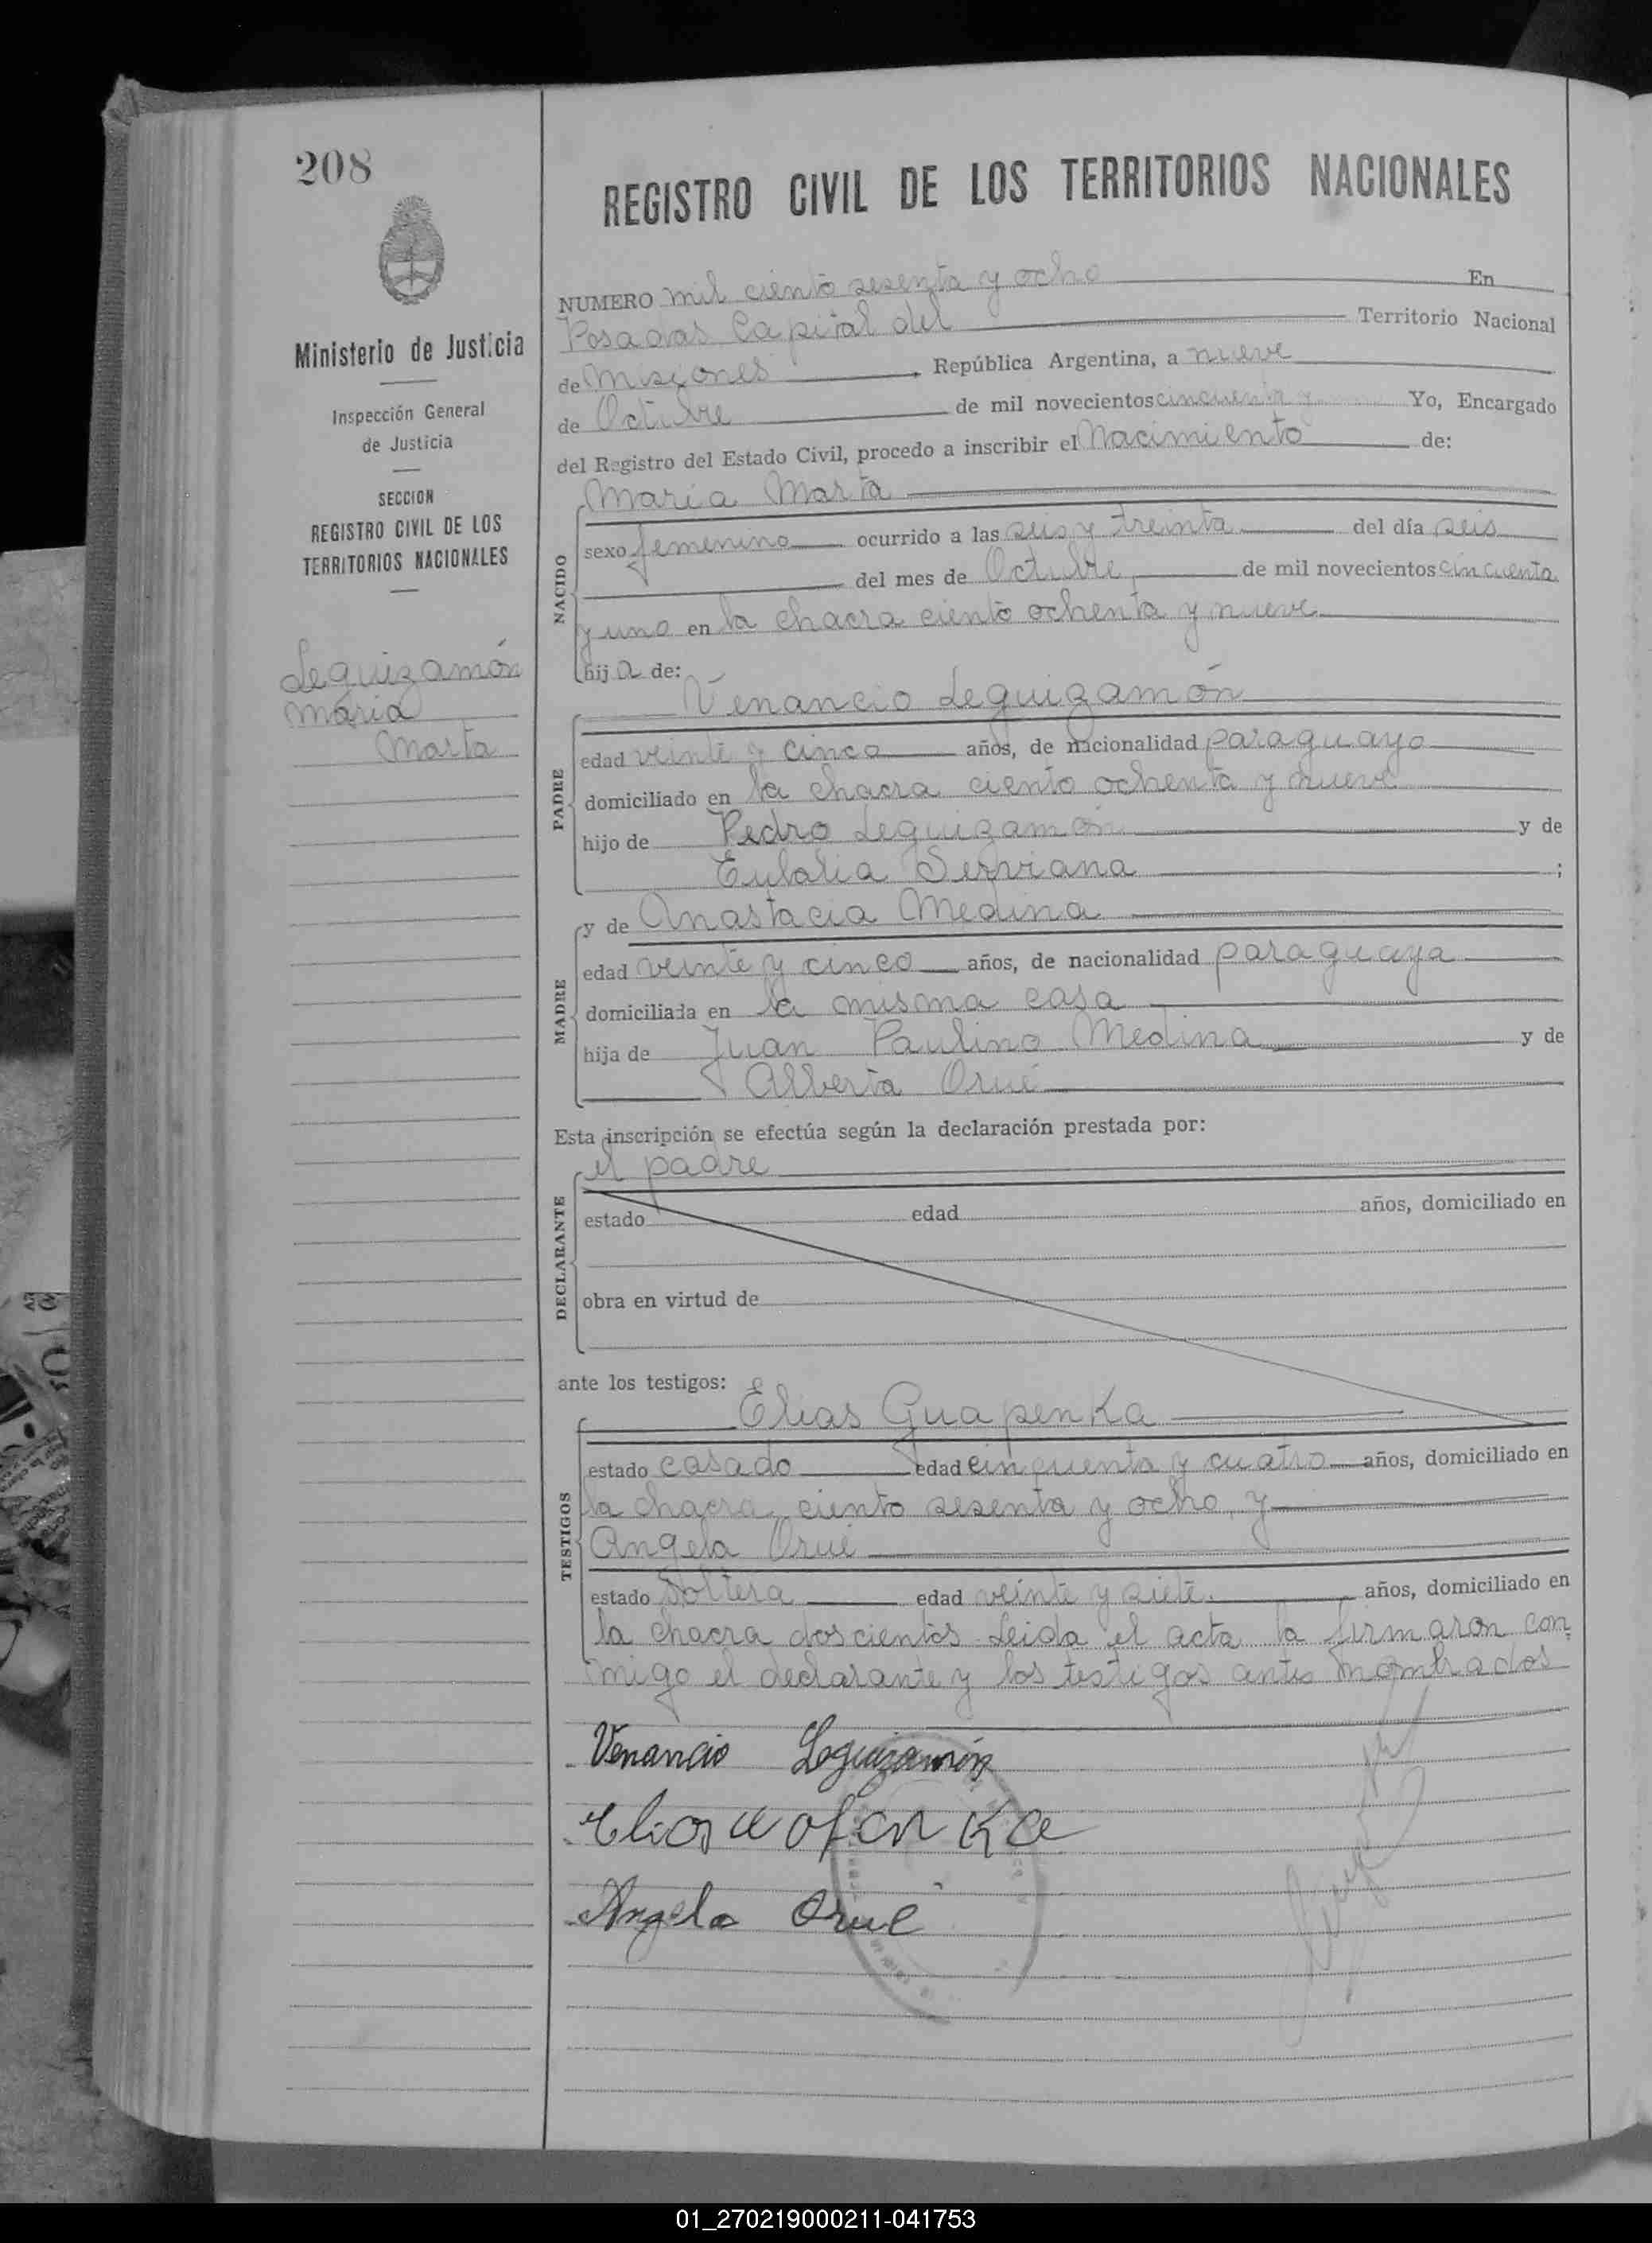 208
REGISTRO CIVIL DE LOS TERRITORIOS NACIONALES
Ministerio de Justicia
Inspección General
de Justicia
SECCION
REGISTRO CIVIL DE LOS
TERRITORIOS NACIONALES
Leguizamón
María
Marta
NUMERO mil ciento sesenta y ocho En
Posadas Capital del Territorio Nacional
de Misiones, República Argentina, a nueve
de Octubre de mil novecientos cincuenta y Yo, Encargado
del Registro del Estado Civil, procedo a inscribir el Nacimiento de:
NACIDO
María Marta
sexo femenino ocurrido a las seis y treinta del día seis
del mes de Octubre de mil novecientos cincuenta
y uno en la chacra ciento ochenta y nueve
hija de:
PADRE
Venancio Leguizamón
edad veinte y cinco años, de nacionalidad paraguayo
domiciliado en la chacra ciento ochenta y nueve
hijo de Pedro Leguizamón y de
Eulalia Serviana ;
MADRE
y de Anastacia Medina
edad veinte y cinco años, de nacionalidad paraguaya
domiciliada en la misma casa
hija de Juan Paulino Medina y de
Alberta Orué
Esta inscripción se efectúa según la declaración prestada por:
DECLARANTE
el padre
estado edad años, domiciliado en
obra en virtud de
ante los testigos:
TESTIGOS
Elias Guapenka
estado casado edad cincuenta y cuatro años, domiciliado en
la chacra ciento sesenta y ocho, y
Angela Orué
estado soltera edad veinte y siete. años, domiciliado en
la chacra doscientos. Leida el acta la firmaron con
migo el declarante y los testigos antes nombrados
Venancio Leguizamón
Angela Orué
01_270219000211-041753